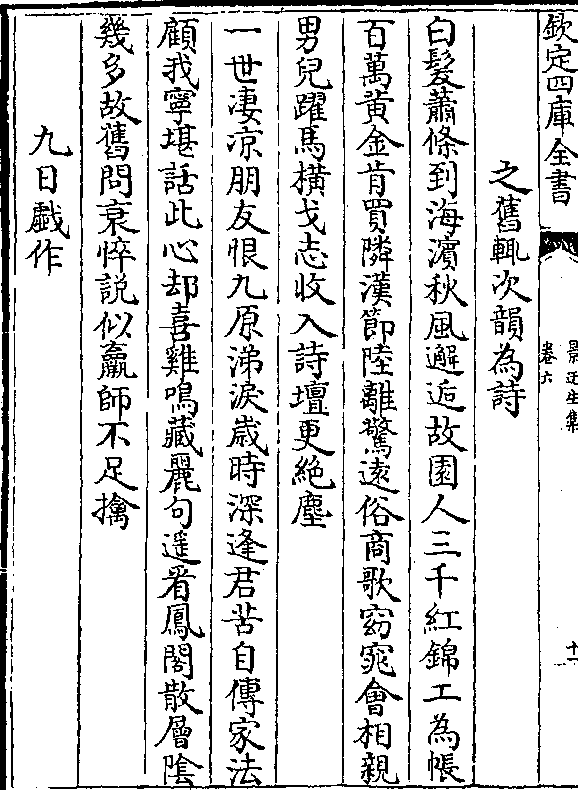 欽定四庫全書
景迂生集
卷六
十一
之舊輒次韻為詩
白髮蕭條到海濵秋風邂逅故園人三千紅錦工為帳
百萬黃金肯買隣漢節陸離驚遠俗商歌窈窕會相親
男兒躍馬橫戈志收入詩壇更絶塵
一世凄凉朋友恨九原涕淚嵗時深逢君苦自傳家法
顧我寧堪話此心却喜雞鳴藏麗句遥看鳳閣散層陰
幾多故舊問衰悴説似羸師不足擒
九日戯作